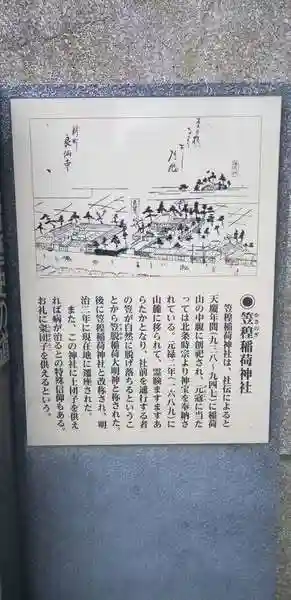 ●笠䅣稲荷神社
かさのぎ
笠䅣稲荷神社は、社伝によると
天慶年間(九三八〜九四七)に稲荷
山の中腹に創祀され、元寇に当た
っては北条時宗より神宝を奉納さ
れている。元禄二年(一六八九)に
山麓に移られて、霊験ますますあ
らたかとなり、社前を通行する者
の笠が自然に脱げ落ちるというこ
とから笠脱稲荷大明神と称された。
後に笠䅣稲荷神社と改称され、明
治二年に現在地に遷座された。
また、この神社に土団子を供え
れば病が治るとの特殊信仰もある。
お礼に粢団子を供えるという。
新町